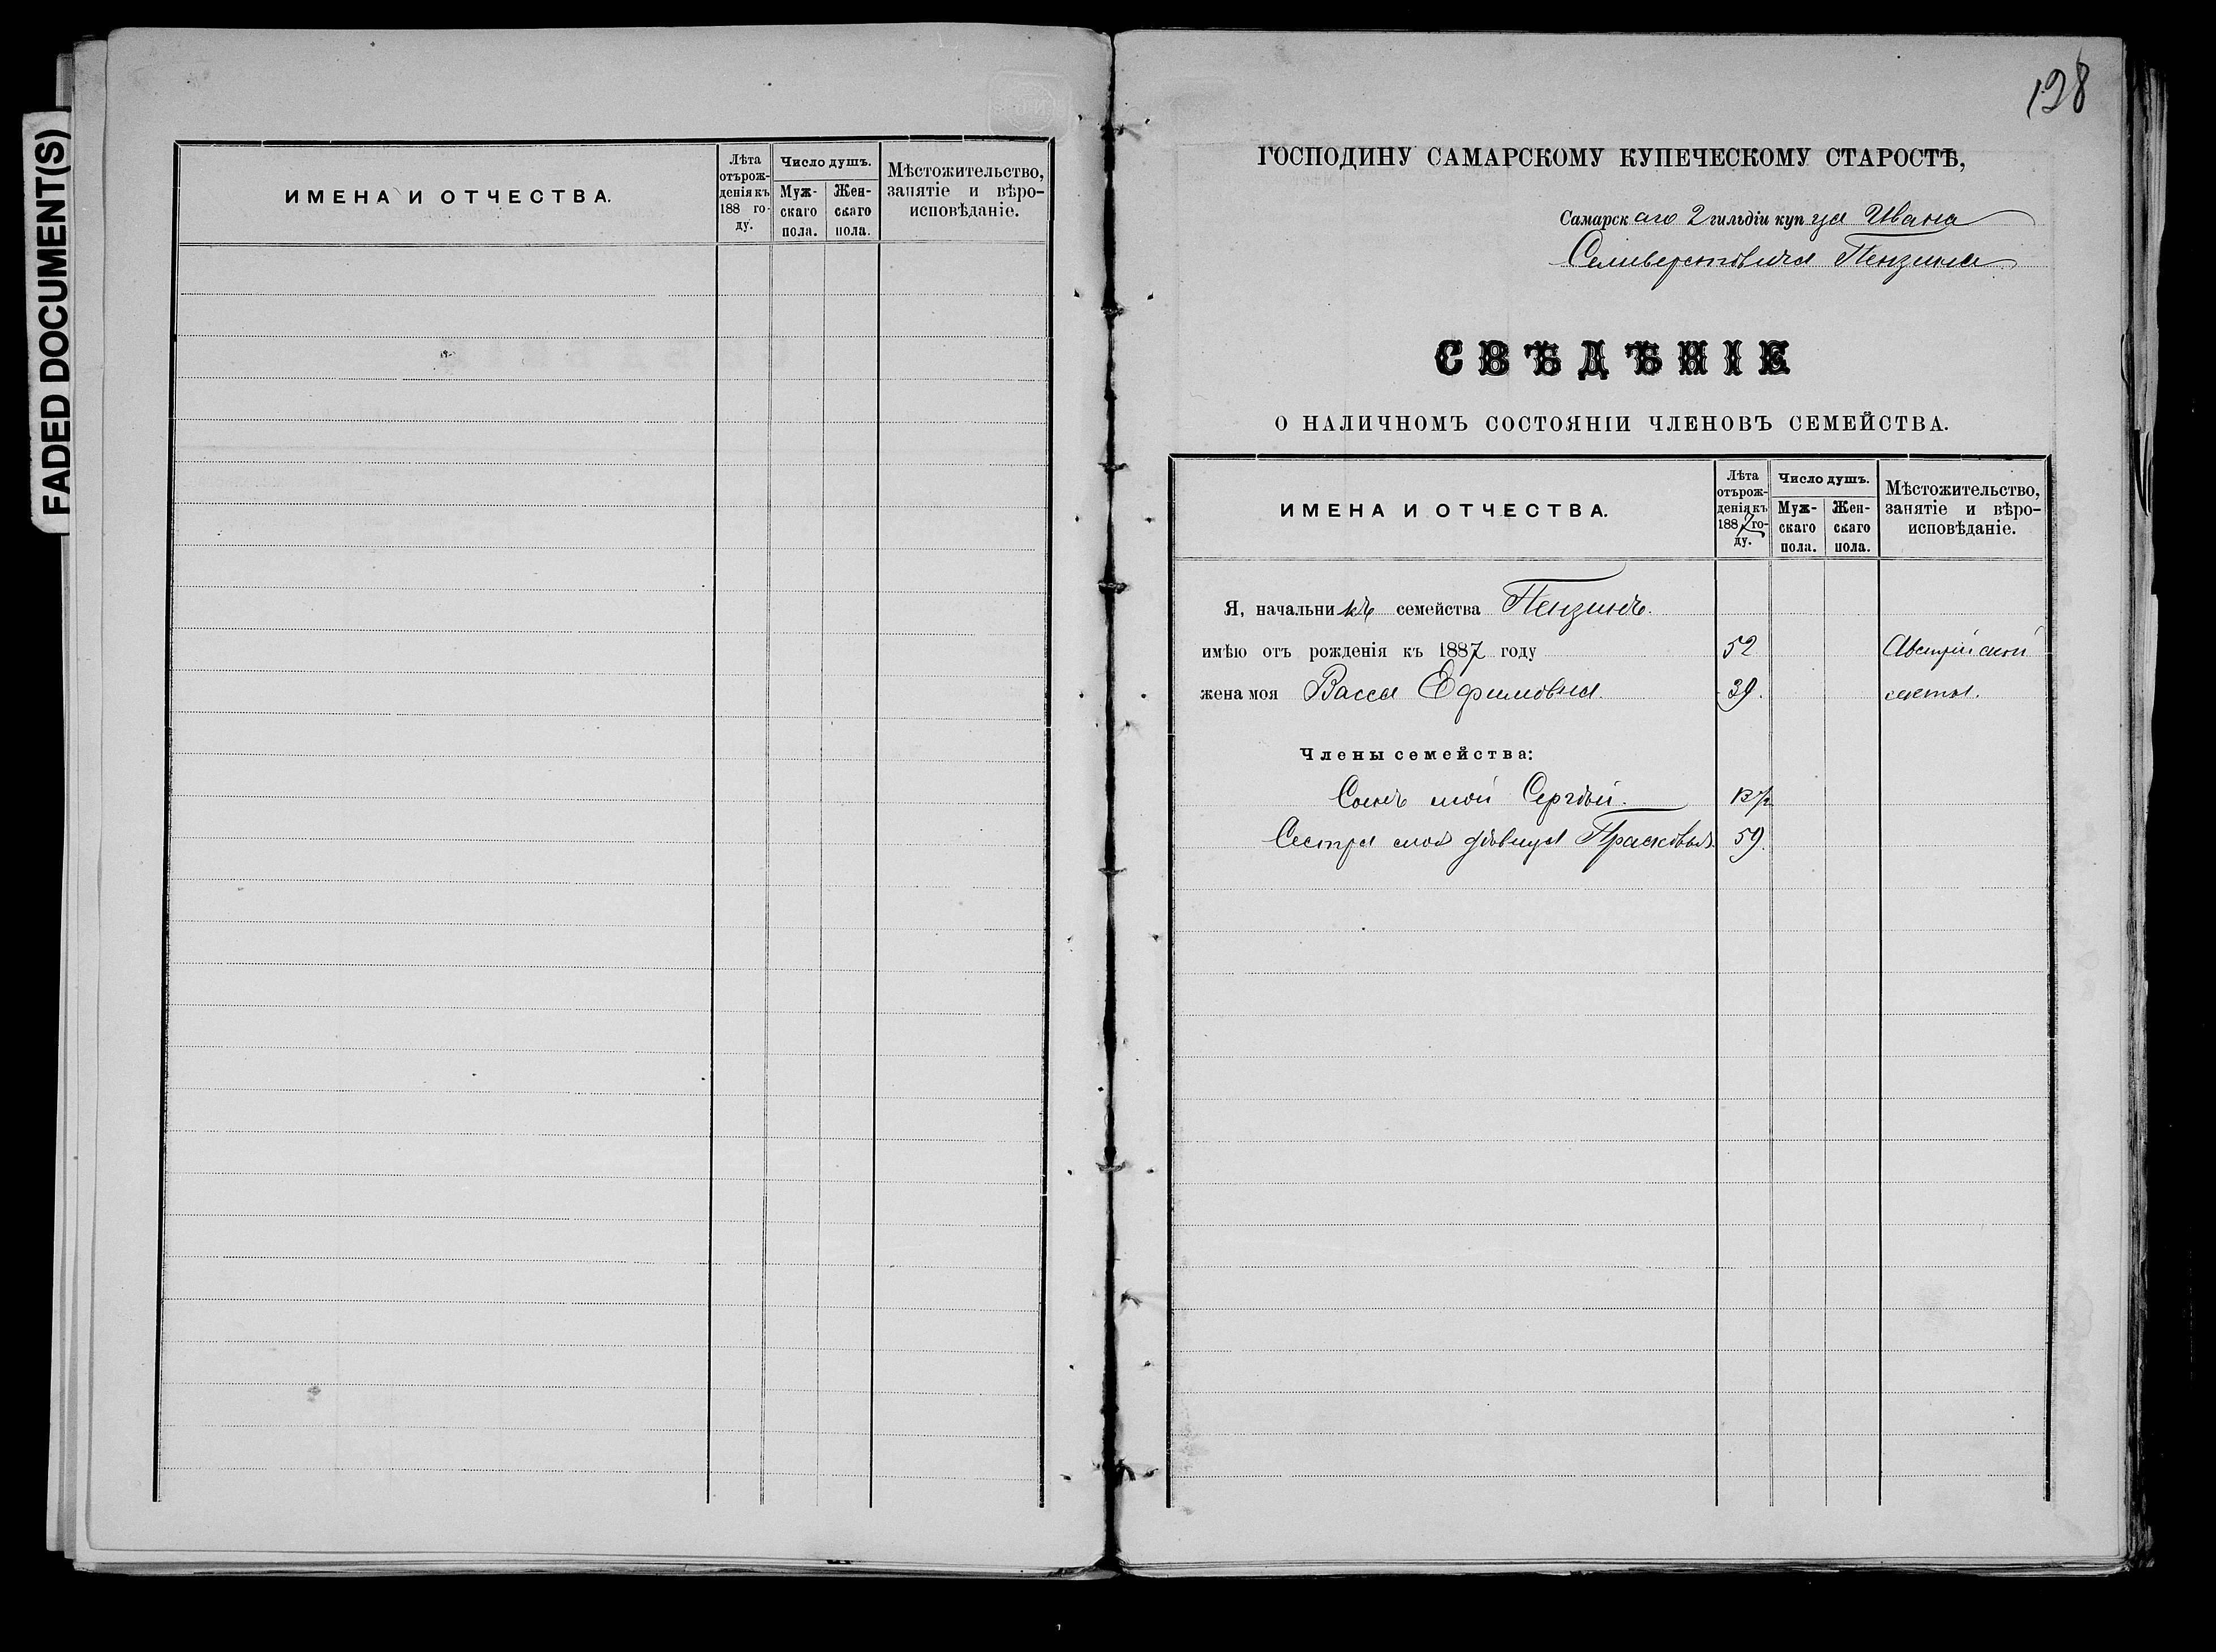 FADED DOCUMENT(S)
ИМЕНА И ОТЧЕСТВА.
Лѣта отърожденія къ 188 году.
Число душъ.
Мужскаго пола.
Женскаго пола.
Мѣстожительство, занятіе и вѣроисповѣданіе.
128
ГОСПОДИНУ САМАРСКОМУ КУПЕЧЕСКОМУ СТАРОСТѢ,
Самарскаго 2 гильдіи купца Ивана
Селиверстовича Пензина
СВѢДѢНІЕ
О НАЛИЧНОМЪ СОСТОЯНІИ ЧЛЕНОВЪ СЕМЕЙСТВА.
ИМЕНА И ОТЧЕСТВА.
Лѣта отърожденія къ 1887 году.
Число душъ.
Мужскаго пола.
Женскаго пола.
Мѣстожительство, занятіе и вѣроисповѣданіе.
Я, начальникъ семейства Пензинъ.
имѣю отъ рожденія къ 1887 году 52 Австрійской
жена моя Васса Ефимовна. 39. секты.
Члены семейства:
Сынъ мой Сергѣй.
Сестра моя дѣвица Прасковья. 59.